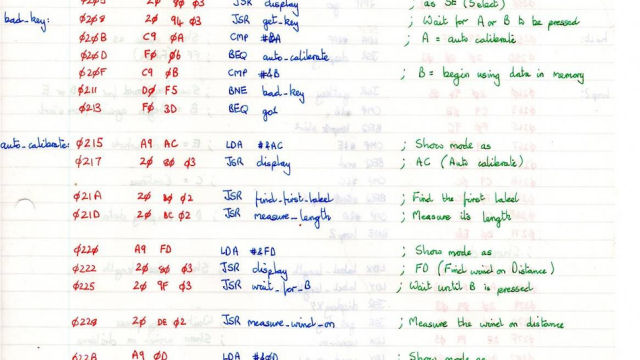 Ø205 2Ø 8Ø Ø3 JSR display ; as SE (Select)
bad_key: Ø2Ø8 2Ø 94 Ø3 JSR get_key ; Wait for A or B to be pressed
Ø2ØB C9 ØA CMP #&A ; A = auto calibrate
Ø2ØD FØ Ø6 BEQ auto_calibrate
Ø2ØF C9 ØB CMP #&B ; B = begin using data in memory
Ø211 DØ F5 BNE bad_key
Ø213 FØ 3D BEQ go1
auto_calibrate: Ø215 A9 AC LDA #&AC ; Show mode as
Ø217 2Ø 8Ø Ø3 JSR display ; AC (Auto calibrate)
Ø21A 2Ø Ø2 JSR find_first_label ; Find the first label
Ø21D 2Ø BC Ø2 JSR measure_length ; Measure its length
Ø22Ø A9 FD LDA #&FD ; Show mode as
Ø222 2Ø 8Ø Ø3 JSR display ; FD (Find wind on Distance)
Ø225 2Ø 9F Ø3 JSR wait_for_B ; Wait until B is pressed
Ø228 2Ø DE Ø2 JSR measure_wind_on ; Measure the wind on distance
Ø22B A9 ØD LDA #&ØD ; Show mode as